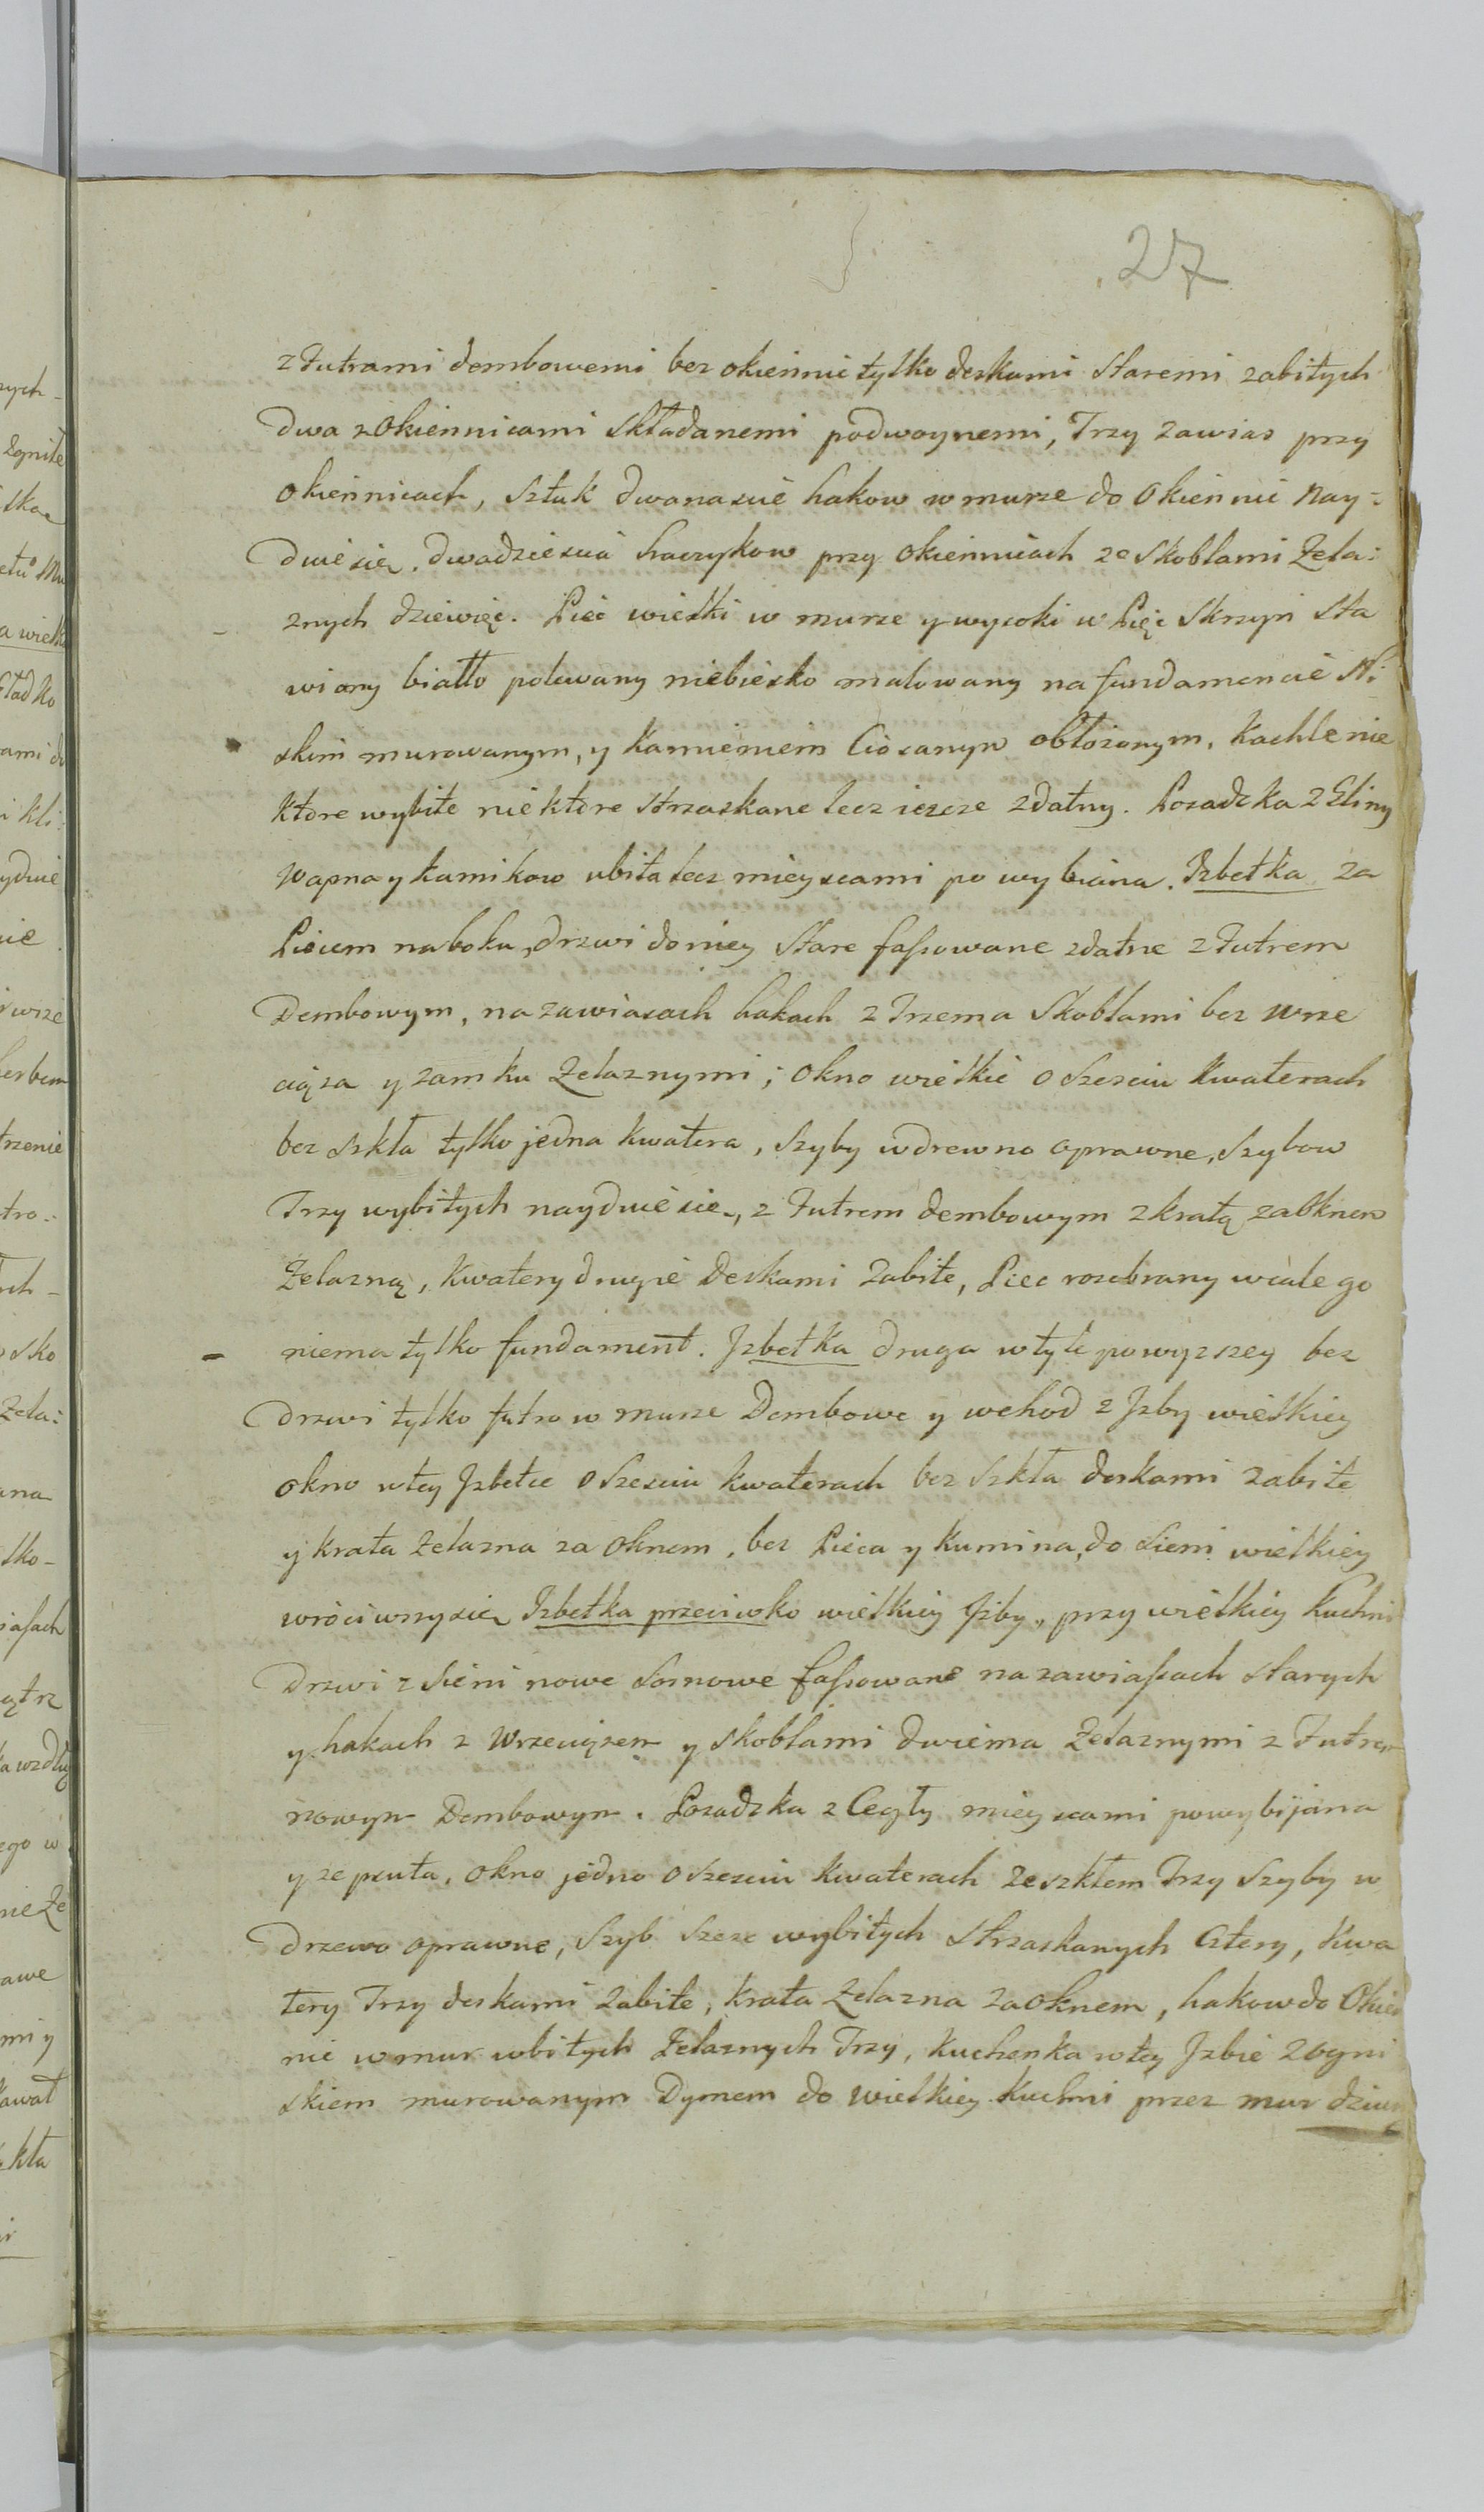 27
z Futrami dembowemi bez okiennic tylko deskami staremi zabitych
dwa z Okiennicami składanemi podwoynemi, Trzy zawias przy
okiennicach, sztuk dwanascie hakow w murze do Okiennic nay-
duie się. dwadziescia haczykow przy okiennicach ze skoblami Zela:
znych dziewięc. Piec wielki w murze y wysoki w Pięc skrzyn sta
wiony biało polewany niebiesko malowany na fundamencie Ni
skim murowanym, y kamieniem Ciosanym obłozonym, kachle nie
ktore wybite niektore strzaskane lecz iescze zdatny. Posadzka z Gliny
wapna y kamikow ubita lecz mieyscami powybiana. Izbetka za
Piecem na boku, drzwi do niey stare fassowane zdatne z Futrem
Dembowym, na zawiasach hakach z Trzema Skoblami bez wrze
ciąza y zamku Zelaznymi; okno wielkie o Szesciu kwaterach
bez szkła tylko jedna kwatera, szyby w drewno oprawne, szybow
Trzy wybitych nayduie sie, z Futrem dembowym z kratą za oknem
Zelazną, kwatery drugie Deskami zabite, Piec rozebrany wcale go
niema tylko fundament. Izbetka druga w tyle powyzszey bez
drzwi tylko futro w murze Dembowe y wchod z Izby wielkiey
okno w tey Izbetce o Szesciu kwaterach bez szkła deskami zabite
y krata zelazna za oknem, bez Pieca y kumina, do sieni wielkiey
wrociwszy sie Izbetka przeciwko wielkiey Izby, przy wielkiey kuchni
Drzwi z sieni nowe sosnowe fassowane na zawiassach starych
y hakach z wrzeciązem y skoblami dwiema Zelaznymi z Futrem
nowym Dembowym. Posadzka z Cegły mieyscami powybijana
y zepsuta, okno jedno o Szesciu kwaterach ze szkłem Trzy Szyby w
Drzewo oprawne, Szyb Szesc wybitych strzaskanych Cztery, kwa
tery Trzy deskami zabite, krata Zelazna za oknem, hakow do Okien
nic w mur wbitych Zelaznych Trzy, kuchenka w tey Izbie z ogni
skiem murowanym Dymem do wielkiey kuchni przez mur dziurą